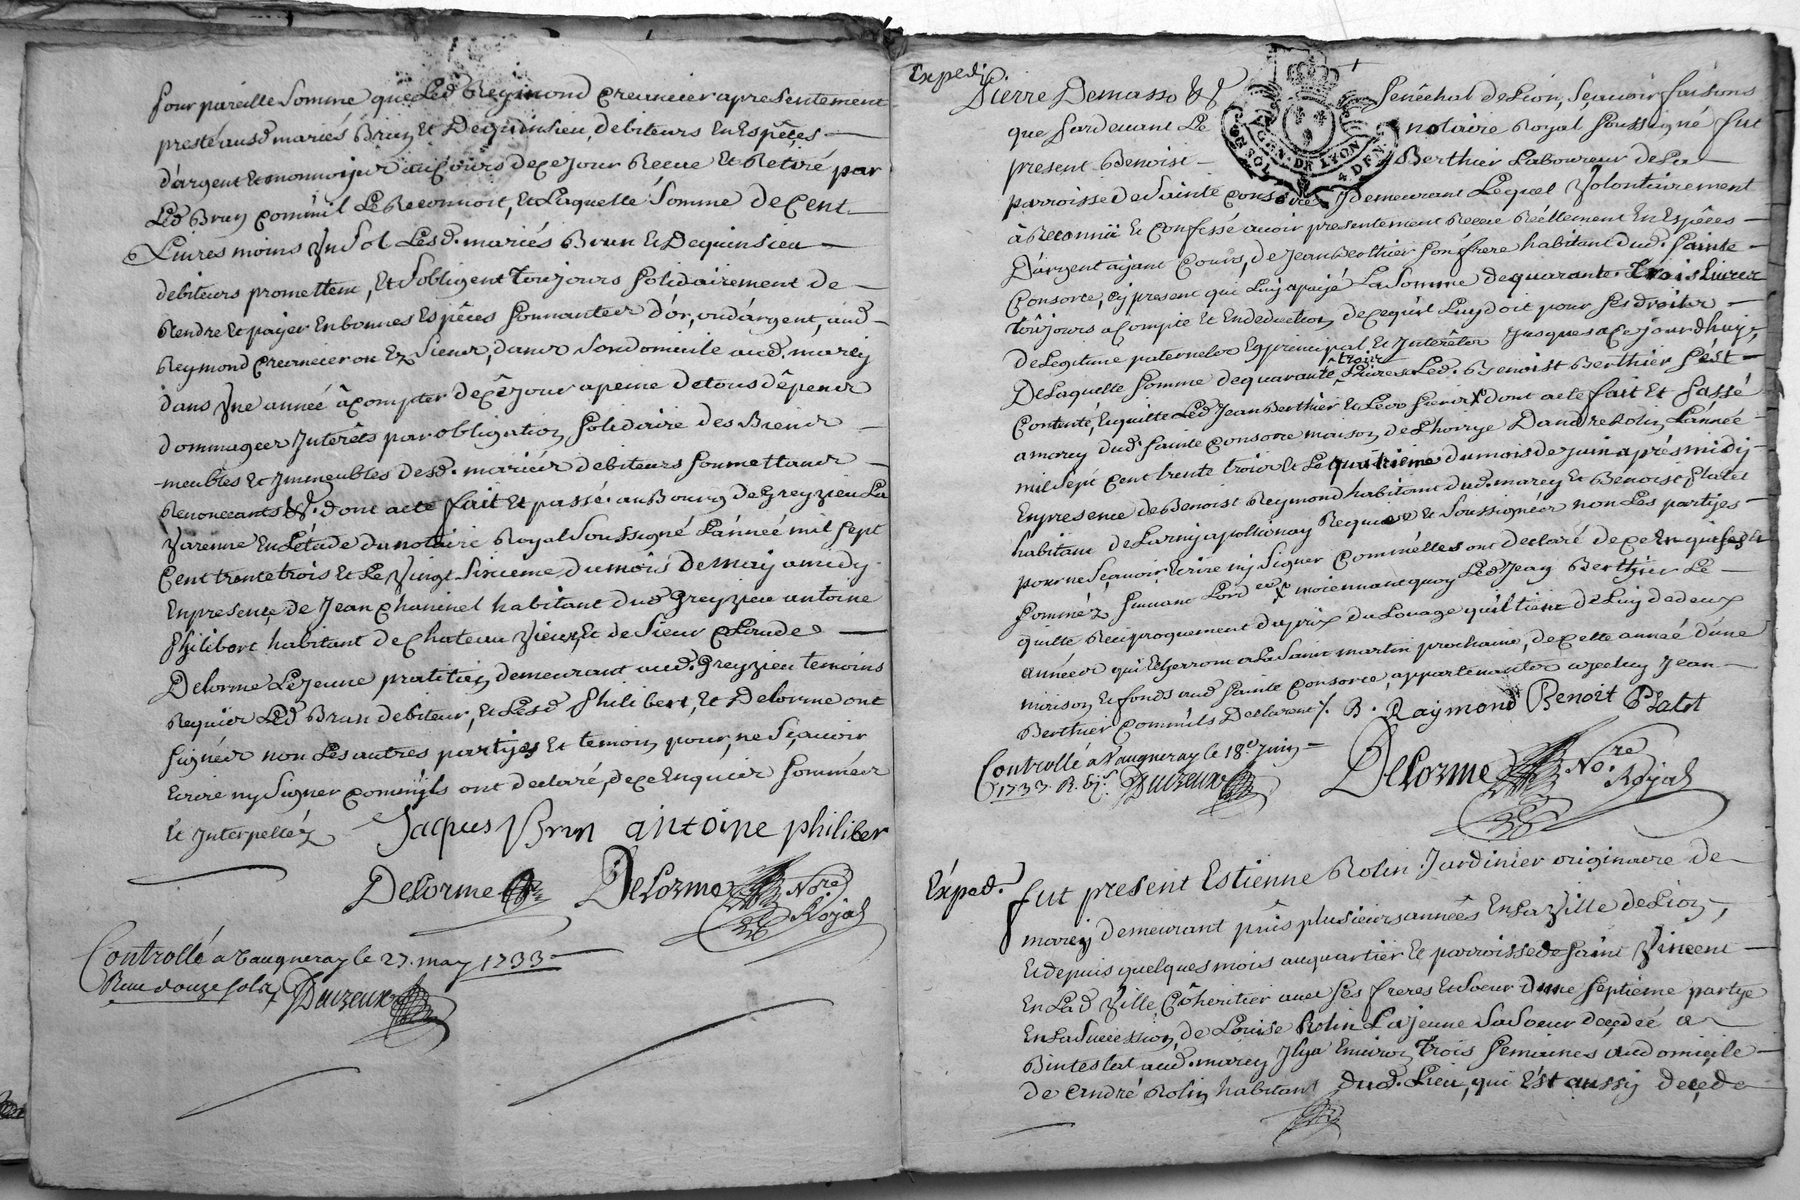 pour pareille Somme que Led Reymond creancier apresentement
presté ausd mariés Brun Et Dequinsieu, debiteurs En Espêces
d'argent Et monnoije au Cours de ce jour Receue Et Retiré par
Led Brun comm'il Le Reconnoit, Et Laquelle Somme de Cent
Livres moins Un Sol Lesd. mariés Brun Et Dequinsieu
debiteurs promettent, Et S'obligent Toujours Solidairement de
Rendre Et payer En bonnes Espêces Sonnantes d'or, ou d'argent, aud
Reymond Creancier ou Ez Siens, dans Son domicile aud. marcy
dans Une année à Compter de Ce jour a peine de tous dêpens
dommages Interêts par obligation Solidaire des Biens
meubles Et Immeubles desd. mariés debiteurs Soumettans
Renonceants &c. dont acte fait Et passé au Bourg de Greyzieu La
Varenne En L'étude du notaire Royal Soussigné L'année mil Sept
Cent trente trois Et Le Vingt Sixieme du mois de may a midy
En presence de Jean Chaninel habitant dud Greyzieu antoine
Philibert habitant de Chateau Vieux, Et de Sieur Claude
Delorme Le jeune pratitien demeurant aud. Greyzieu temoins
Requis Led Brun debiteur, Et Lesd Philibert, Et Delorme ont
Signés non Les autres partijes Et temoin pour ne Sçavoir
Ecrire ny Signer Comm'ijls ont declaré, de ce Enquis Sommés
Et Interpellés
Jacques Brun antoine philiber
Delorme Delorme Nore Royal
Controllé a Vaugneray le 27. may 1733
Reçu douze sols Duizeux
Exped.
Pierre Demasso &c Senêchal de Lion, Sçavoir faisons
GEN. DE LYON
que pardevant Le notaire Royal Soussigné fut
present Benoist Berthier Laboureur de La
parroisse de Sainte Consorce ij demeurant Lequel Volontairement
à Reconnû Et Confessé avoir presentement Receu Réellement En Espêces
D'argent aijant Cours, de Jean Berthier Son frere habitant dud. Sainte
Consorce, Cy present qui Luy a payé La Somme de quarante Trois Livres
toûjours a Compte Et En deduction de Ce qu'il Luy doit pour Ses droits
de Legitime paternelle En principal Et Interêts Jusques a Ce jourd'huij,
trois
De Laquelle Somme de quarante Livres Led. Benoist Berthier S'est
Contenté, En quitte Led Jean Berthier Et Les Siens dont acte fait Et Passé
a marcy dud Sainte Consorce maison de L'horrye D'andré Rolin L'année
mil Sept Cent trente trois Et Le quatrieme du mois de juin aprés midij
En presence de Benoist Reymond habitant dud. marcy Et Benoist Platet
habitant de Turinij apothiquay Requis Et Soussignés non Les partijes
pour ne Sçavoir Ecrire nij Signer Comm'elles ont declaré de Ce Enquises Et
Sommés Suivant L'ord.ce moiennant quoy Led Jean Berthier Le
quitte Reciproquement du prix du Louage qu'il tient de Luij de deux
années qui Echerront a La Saint martin prochaine, de Cette année d'une
maison, Et fonds aud Sainte Consorce, appartenants a yceluy Jean
Berthier Comm'ils Declarent /. B. Raymond Benoit Platet
Delorme Nore Royal
Controllé a Vaugneray le 18e juin
1733. R. Duizeux
Exped.
fut present Estienne Rolin Jardinier originaire de
marcy demeurant puis plusieurs années En La Ville de Lion,
Et depuis quelques mois au quartier Et parroisse de Saint Vincent
En Lad Ville, Cohéritier avec Ses freres Et Soeur d'une Septieme partije
En La Succession de Louise Rolin La jeune Sa Soeur deçedée a
Bintestat aud. marcy Ilya Environ Trois Semaines au domicile
de andré Rolin habitant dud. Lieu, qui Est aussij deçede